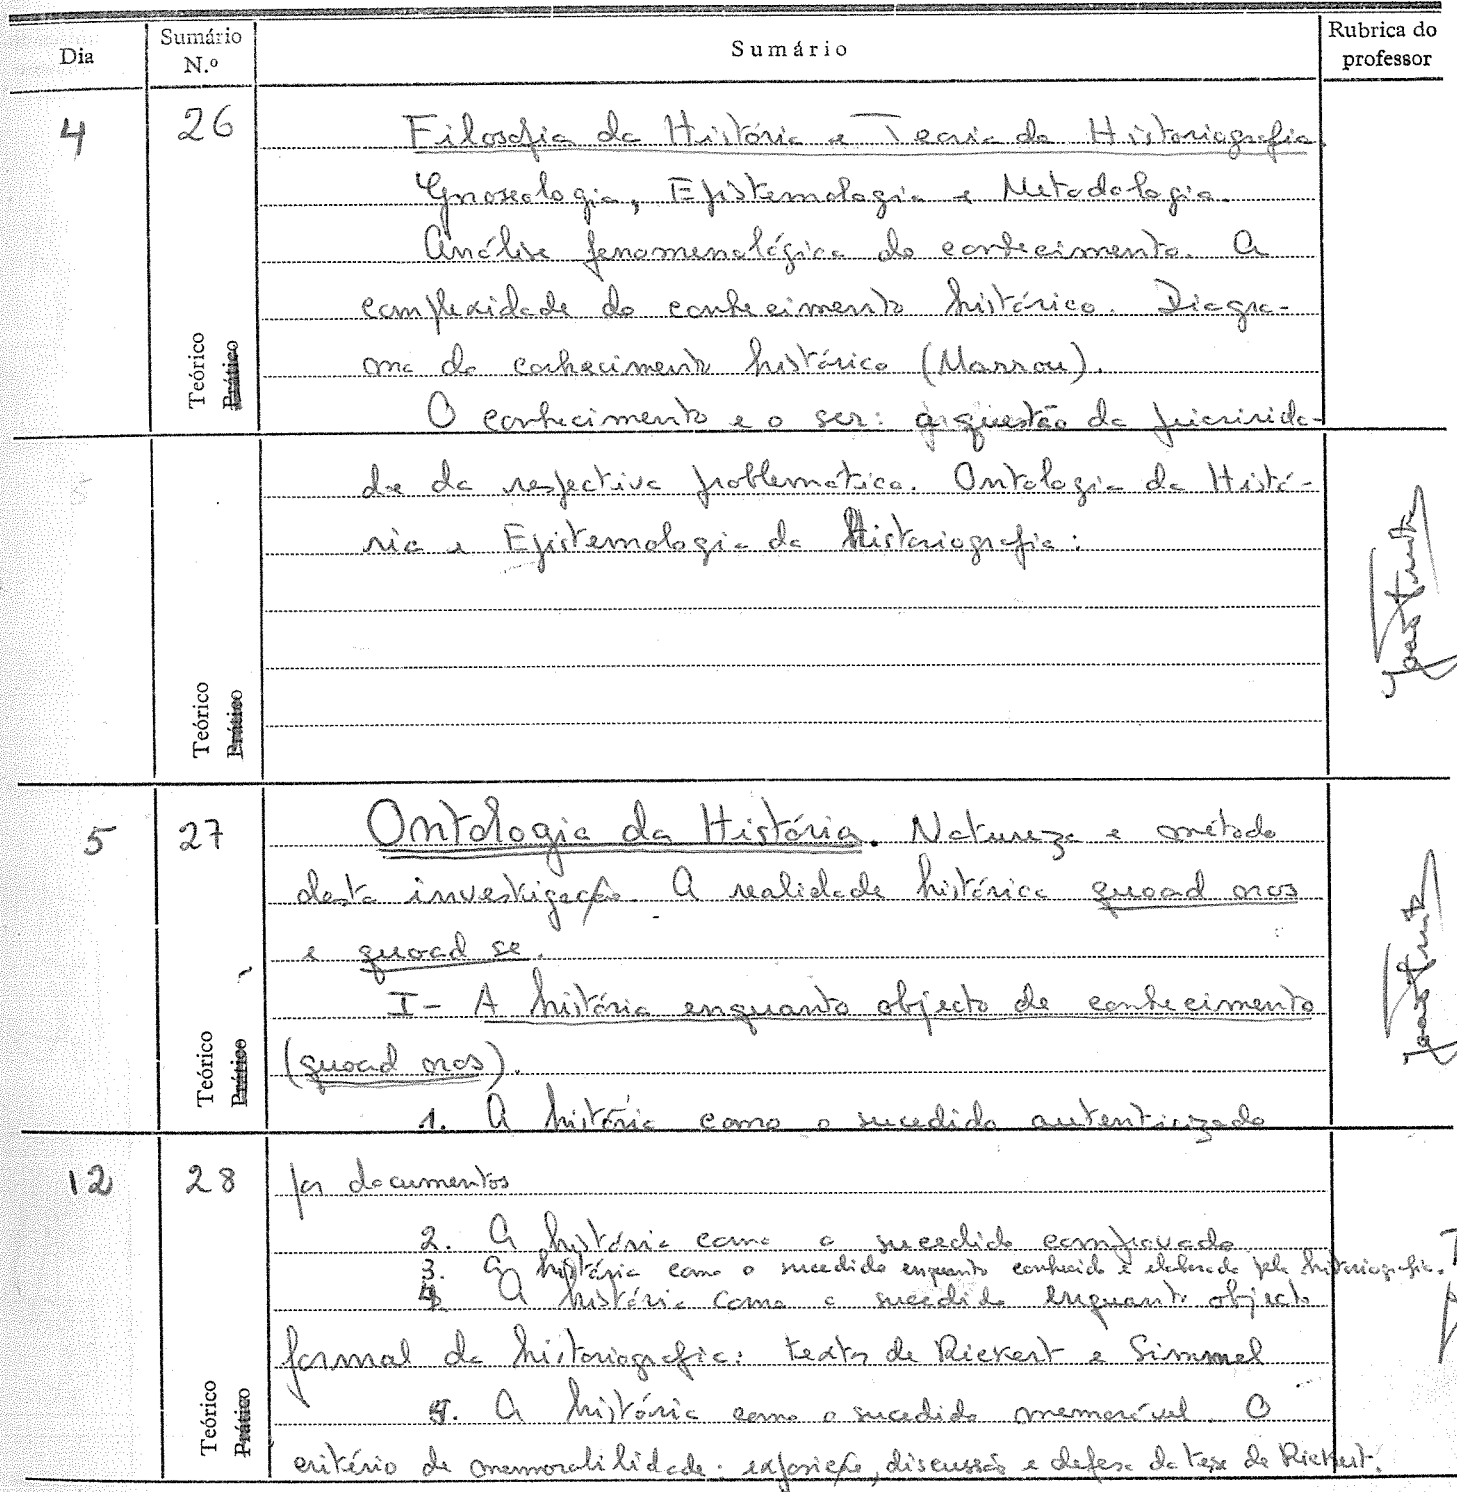 Dia Sumário N.º Sumário Rubrica do professor
4 26 Filosofia da História e Teoria da Historiografia.
Gnoseologia, Epistemologia e Metodologia.
Análise fenomenológica do conhecimento. A
complexidade do conhecimento histórico. Diagra-
ma do conhecimento histórico (Marrou).
O conhecimento e o ser: a questão da prioridade-
Teórico Prático
de da respectiva problemática. Ontologia da Histó-
ria e Epistemologia da Historiografia:
Teórico Prático
5 27 Ontologia da História. Natureza e método
desta investigação. A realidade histórica quoad nos
e quoad se.
I - A história enquanto objecto de conhecimento
(quoad nos).
1. A história como o sucedido autenticizado
Teórico Prático
12 28 por documentos
2. A história como o sucedido comprovado
3. A história como o sucedido enquanto conhecido e elaborado pela historiografia.
4. A história como o sucedido enquanto objecto
formal da historiografia: textos de Rickert e Simmel
5. A história como o sucedido memorável. O
critério de memorabilidade: exposição, discussão e defesa da tese de Rickert.
Teórico Prático